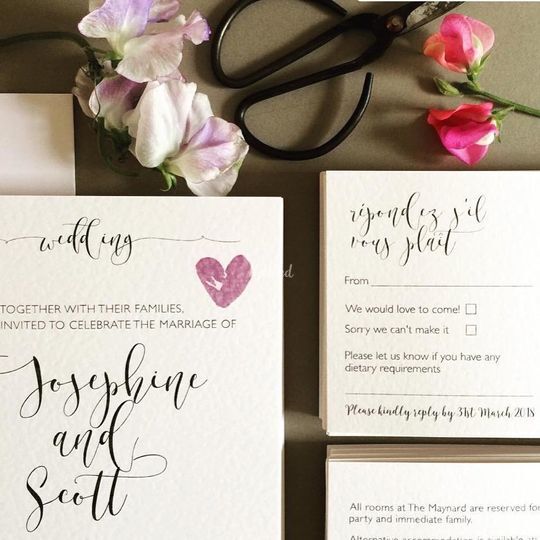 wedding
TOGETHER WITH THEIR FAMILIES,
INVITED TO CELEBRATE THE MARRIAGE OF
Josephine
and
Scott
répondez s'il
vous plaît
From
We would love to come!
Sorry we can't make it
Please let us know if you have any
dietary requirements
Please kindly reply by 31st March 2018
All rooms at The Maynard are reserved for
party and immediate family.
Alternative accommodation is available at